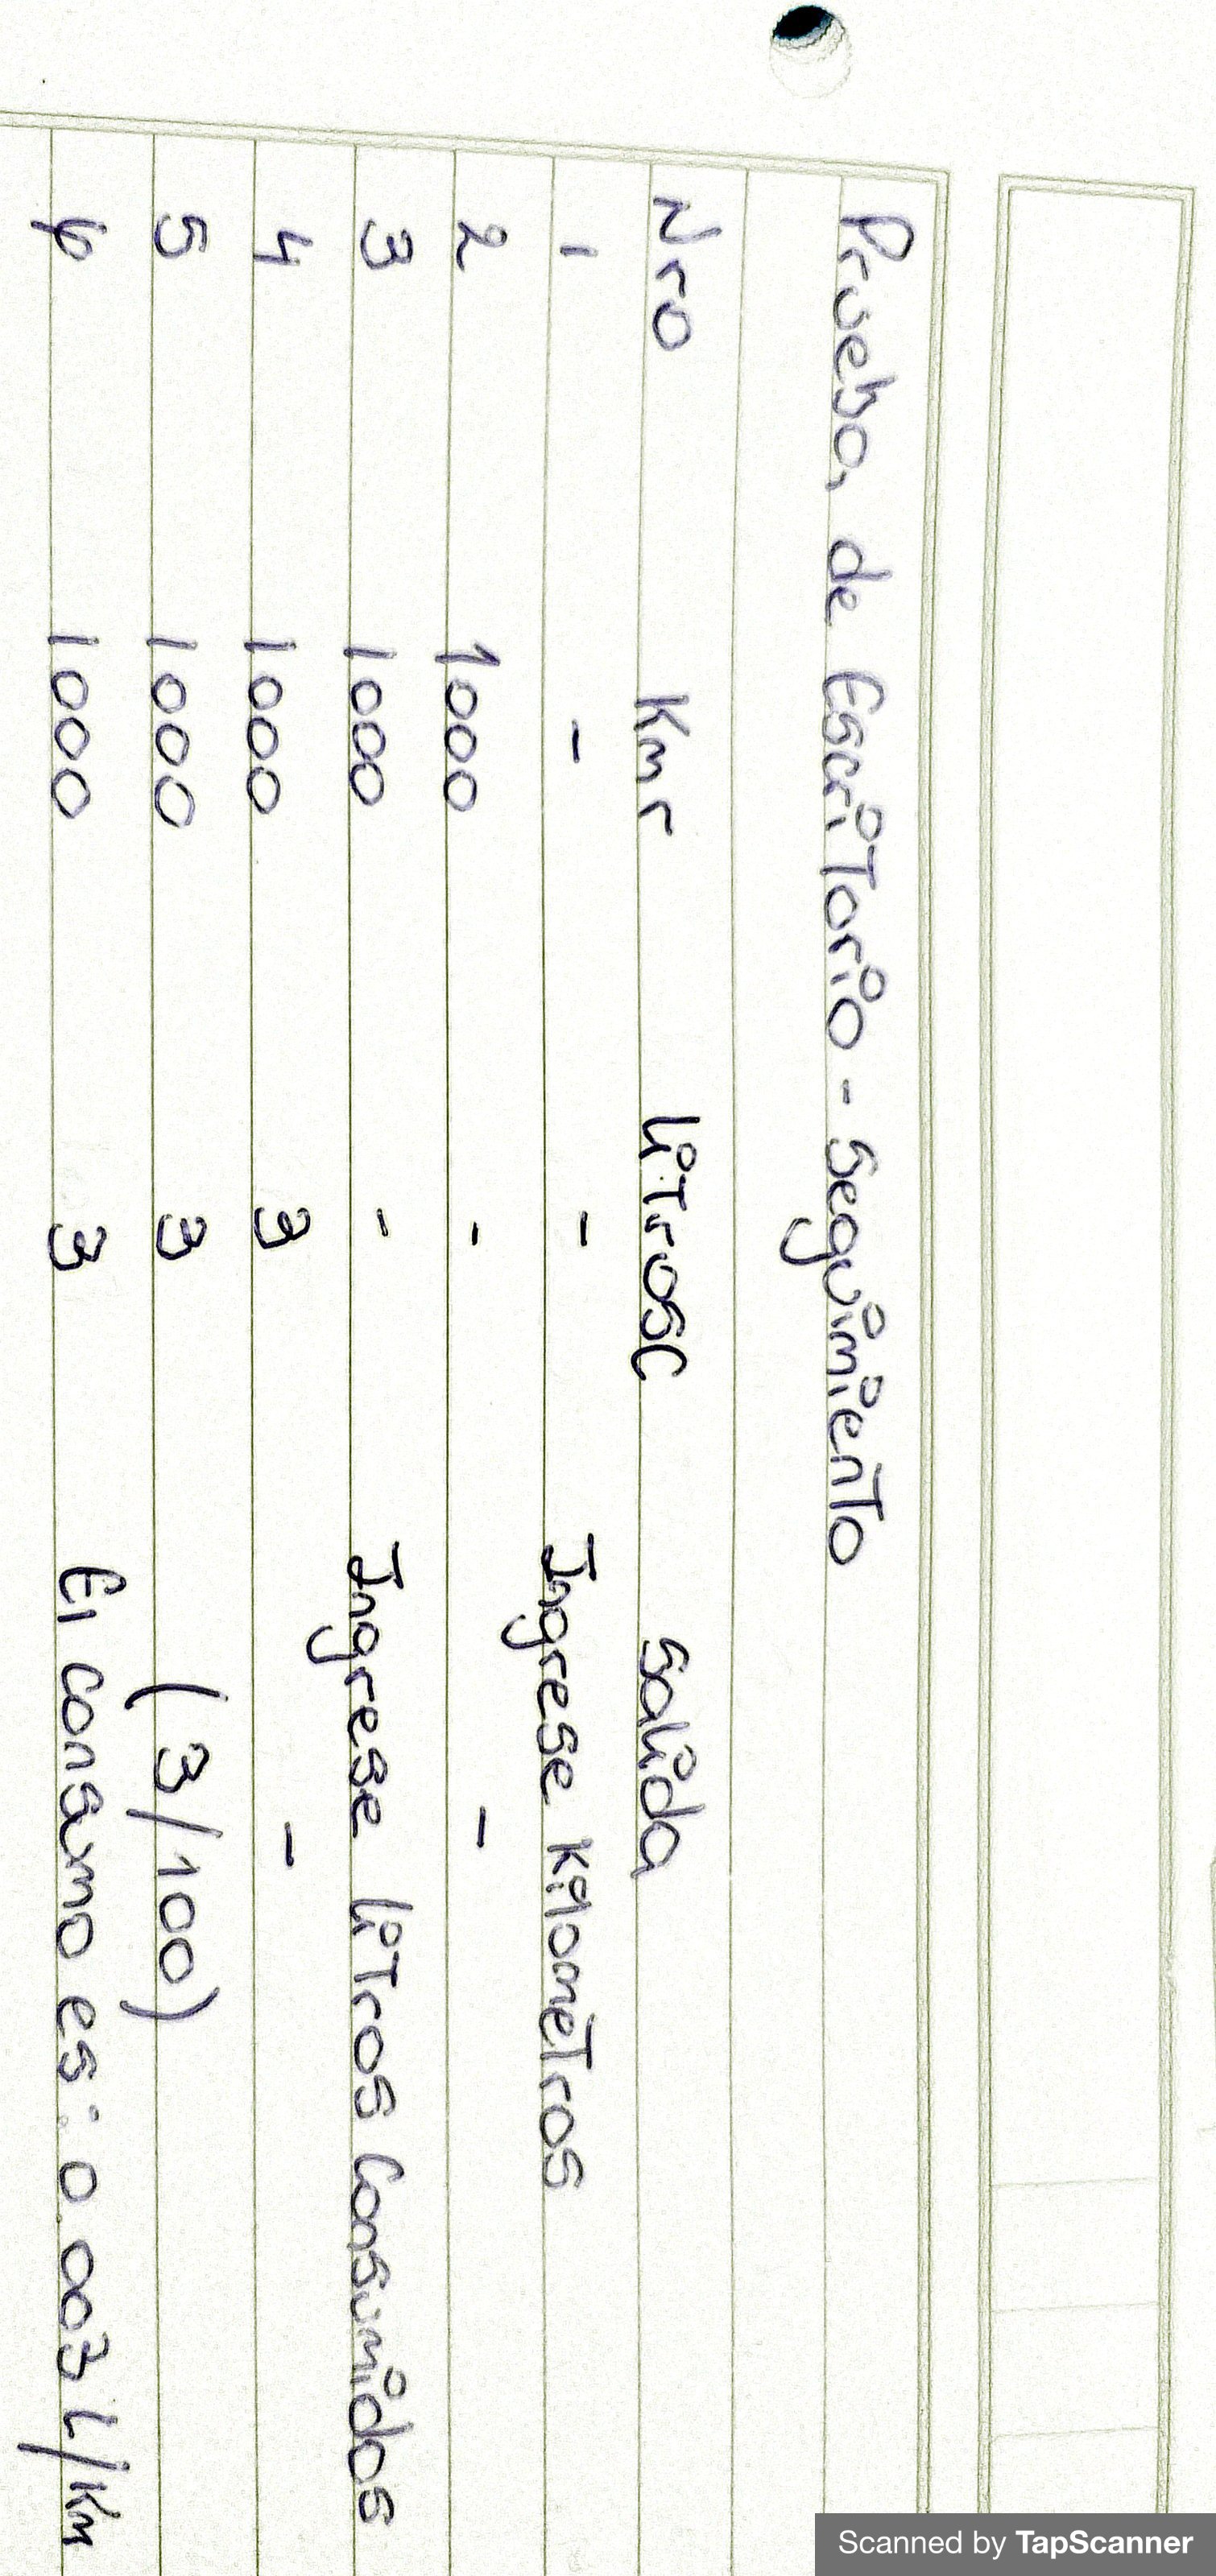 Prueba de Escritorio - Seguimiento
Nro Kmr litrosc salida
1 - - Ingrese kilometros
2 1000 - -
3 1000 - Ingrese litros consumidos
4 1000 3 -
5 1000 3 (3/100)
6 1000 3 El consumo es: 0 003 L/Km
Scanned by TapScanner